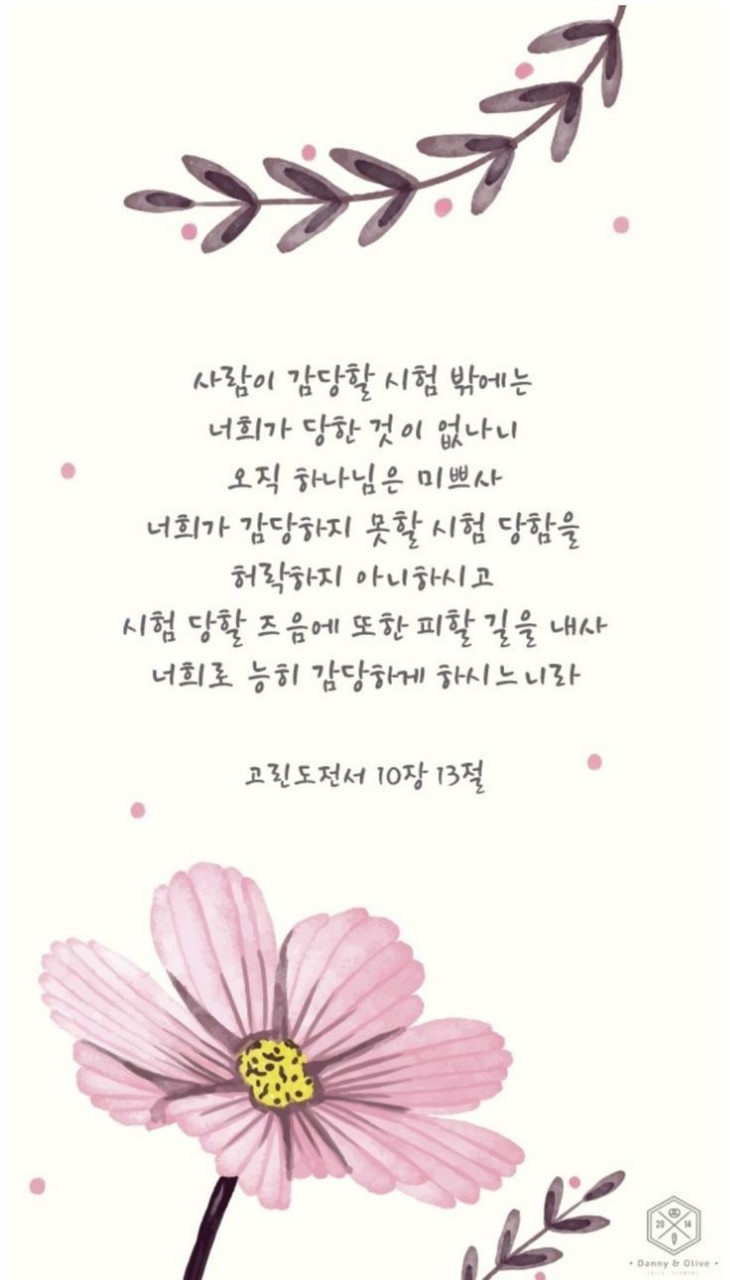 사람이 감당할 시험 밖에는
너희가 당한 것이 없나니
오직 하나님은 미쁘사
너희가 감당하지 못할 시험 당함을
허락하지 아니하시고
시험 당할 즈음에 또한 피할 길을 내사
너희로 능히 감당하게 하시느니라
고린도전서 10장 13절
20 14
• Danny & Olive •